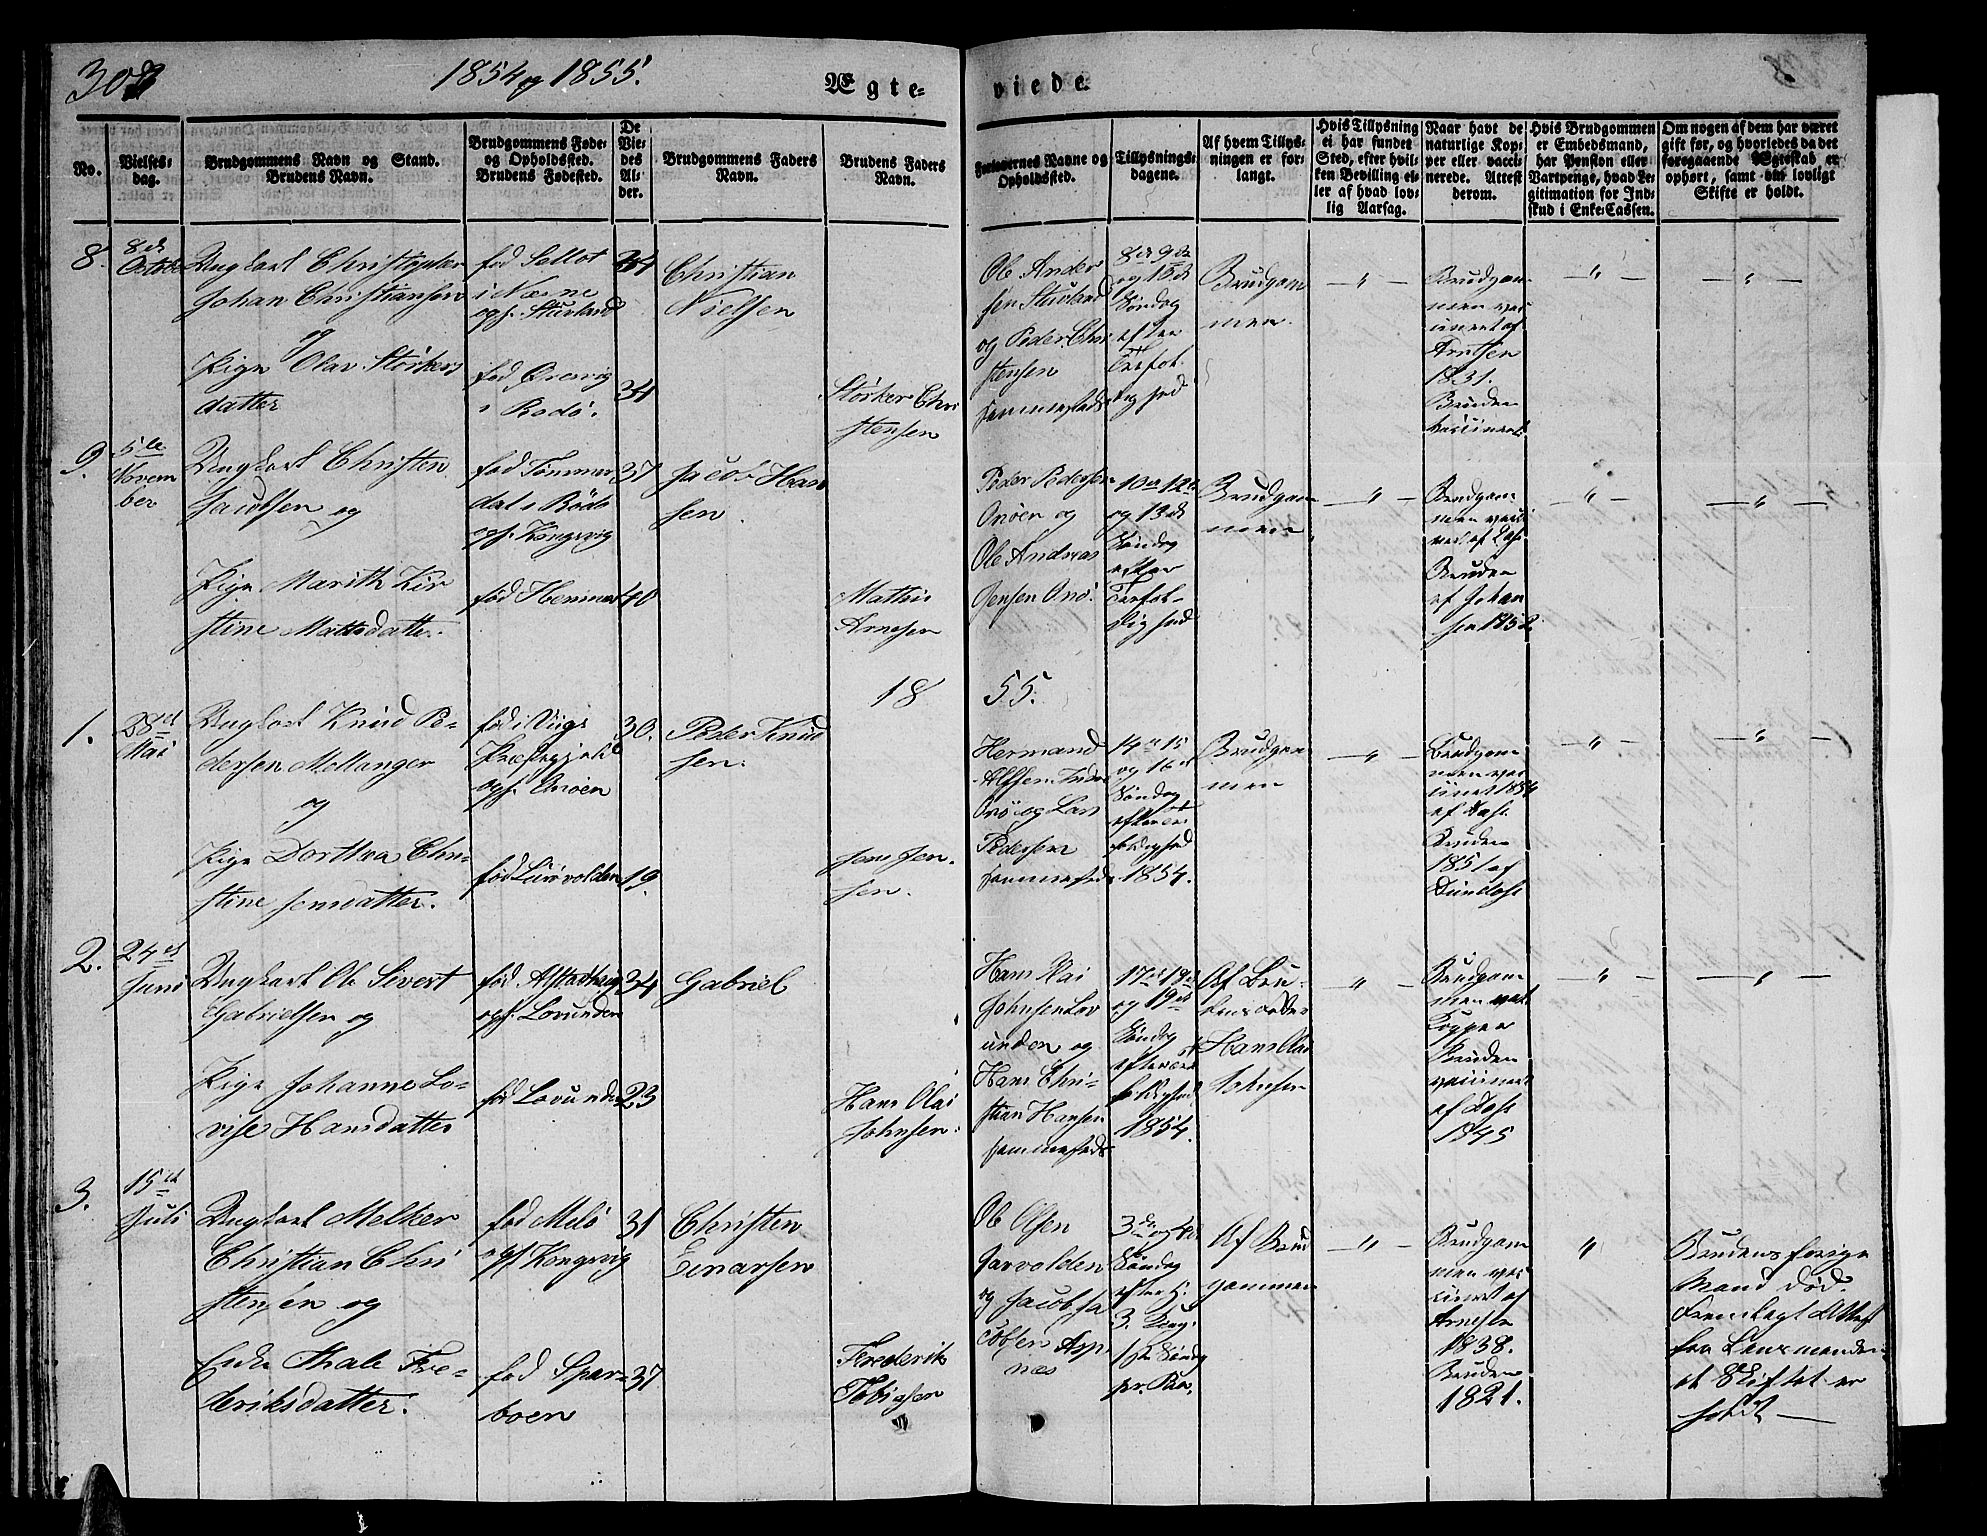 308
1854 og 1855.
Ægte=
viede.
No.
Vielses=
dag.
Brudgommens Navn og Stand.
Brudens Navn.
Brudgommens Føde=
og Opholdssted.
Brudens Fødested.
De
Vie=
des
Al=
der.
Brudgommens Faders
Navn.
Brudens Faders
Navn.
Forlovernes Navne og
Opholdssted.
Tillysnings=
dagene.
Af hvem Tillys=
ningen er for=
langt.
Hvis Tillysning
ei har fundet
Sted, efter hvil=
ken Bevilling el=
ler af hvad lov=
lig Aarsag.
Naar havt de
naturlige Kop=
per eller vacci=
nerede. Attest
derom.
Hvis Brudgommen
er Embedsmand,
har Pension eller
Vartpenge, hvad Le=
gitimation for Ind=
skud i Enke=Cassen.
Om nogen af dem har været
gift før, og hvorledes da det
foregaaende Egteskab er
ophørt, samt om lovligt
Skifte er holdt.
8.
8de
Octobr
Ungkarl Christopher
Johan Christiansen
og
Pige Olav Størkers
datter
født
i Næsne
ops. Stuvland
fød
i Rødø.
34
34
Christian
Nielsen
Størker Chri
stensen
Ole Ander
sen Stuvland
og Peder Chri
stensen
sammesteds
8de 9de
og 10de
Søndag
efter
Trefol
dighed
Brudgom
men.
Brudgom
men vac
cineret af
Arntsen
1831.
Bruden
vaccineret
9.
5te
Novem
ber
Ungkarl Christen
Jacobsen og
Pige Marith Kir
stine Mattsdatter.
fød Tømmer
dal i Rødø
ops. Kongsvig
fød Hemnes
37
40
Jacob Han
sen.
Mathis
Arnesen
Peder Pedersen
Onøen og
Ole Andreas
Jensen Onø.
10de 12te
og 13de
Søndag
efter
Trefol-
dighed
Brudgom
men
Brudgom
men vacci
neret af
Bruden
af Johan
sen 1852
18
55.
1.
28de
Mai
Ungkarl Knud Pe-
dersen Mellanger
og
Pige Dorthea Chri-
stine Jensdatter.
fød i Viigs
Præstegjeld
ops. Onøen
fød Lurvolden
30.
19.
Peder Knud
sen.
Jens Jen-
sen.
Hermand
Onø og Lars
Pedersen
sammesteds
14de 15
og 16de
Søndag
efter Tre
foldighed
1854.
Brudgom
men
Brudgom
men vac
cineret 1834
af
Bruden
1851 af
2.
24de
Juni
Ungkarl Ole Sivert
Gabrielsen og
Pige Johanne Lo-
vise Hansdatter
fød Alstadhaug
ops. Lovunden
fød Lovunden
34
23
Gabriel
Hans Olai
Johnsen.
Hans Olai
Johnsen Lov
unden og
Hans Chri-
stian Hansen
sammesteds
17de 18de
og 19de
Søndag
efter Tre
foldighed
1854.
Af Bru-
dens Fader
Hans Olai
Johnsen
Brudgom
men havt
Kopper
Bruden
vaccineret
af
1845
3.
15de
Juli
Ungkarl Melker
Christian Chri
stensen og
Enke Thale Fre-
deriksdatter.
fød Melø
ops. Kongsvig
fød Spar-
boen
31
37
Christen
Einarsen
Frederik
Tobiasen
Ole Olsen
Jarvolden
og Jacob Ja
cobsen Asp
næs
3de og 4de
Søndag
efter H.
3. Kong.
1ste Søndag
Af Brud
gommen
Brudgom
men vac
cineret af
Arnesen
1838.
Bruden
1821.
Brudens forige
Mand død.
Fremlagt Attest
fra Lensmanden
at Skiftet er
holdt